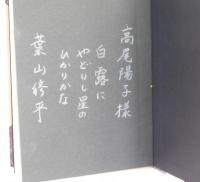 高尾陽子様
白露に
やどりし星の
ひかりかな
葉山修平